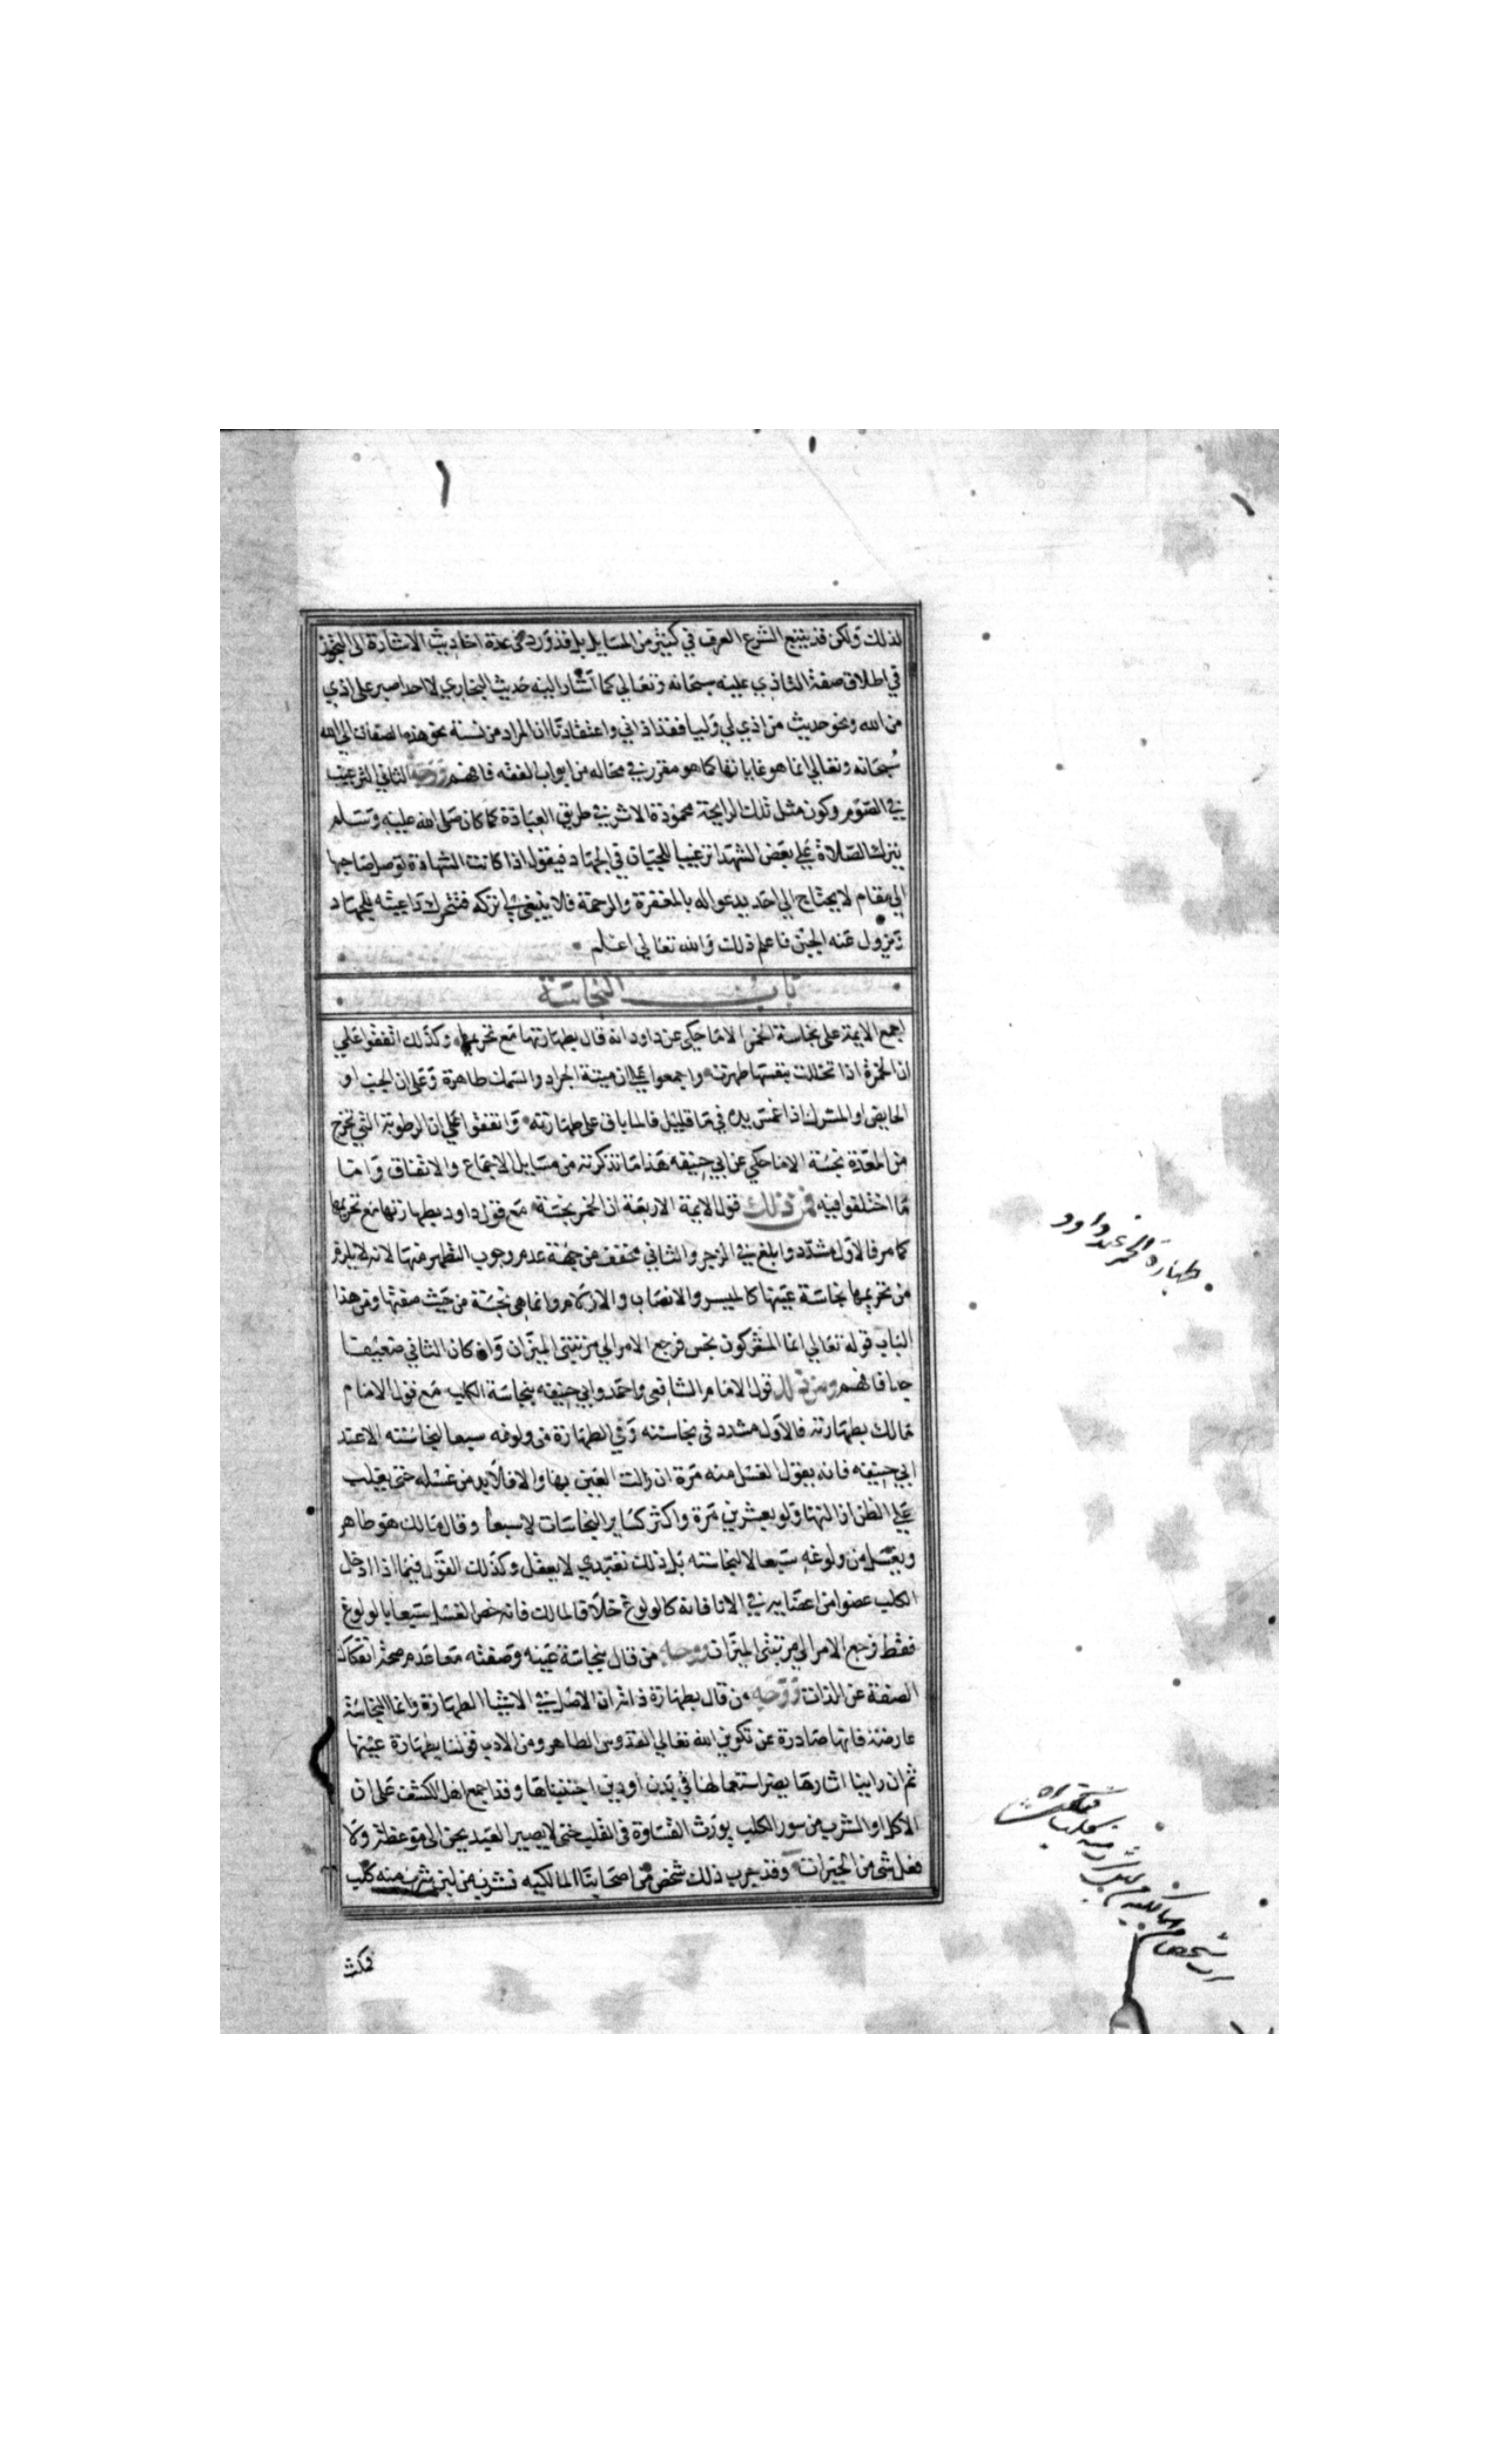 لذلك ولكن قد يتبع الشرع العرف في كثير من المسايل بل قد ورد في عدة احاديث الاشارة الى التجوز
في اطلاق صفة التاذي عليه سبحانه وتعالي كما اشار اليه حديث البخاري لا احد اصبر على اذي
من الله ونحو حديث من اذي لي وليا فقد اذاني واعتقادنا ان المراد من نسبة نحو هذه الصفات الى الله
سبحانه وتعالي انما هو غاياتها كما هو مقرر في محاله من ابواب الفقه فافهم ووجه الثاني الترغيب
في الصوم وكون مثل تلك الرايحة محمودة الاثر في طريق العبادة كما كان صلى الله عليه وسلم
يترك الصلاة علي بعض الشهدا ترغيبا للجبان في الجهاد فيقول اذا كانت الشهادة توصل صاحبها
الي مقام لا يحتاج الي احد يدعو اله بالمغفرة والرحمة فلا ينبغي لي تركه فتتحرك داعيته للجهاد
ويزول عنه الجبن فاعلم ذلك والله تعالي اعلم
باب النجاسة
اجمع الايمة على نجاسة الخمر الا ما حكي عن داود انه قال بطهارتها مع تحريمها وكذلك اتفقوا علي
ان الخمرة اذا تخللت بنفسها طهرت واجمعوا علي ان ميتة الجراد والسمك طاهرة وعلى ان الجنب او
الحايض او المشرك اذا غمس يده في ما قليل فالما باق على طهارته واتفقوا علي ان الرطوبة التي تخرج
من المعدة نجسة الا ما حكي عن ابي حنيفه هذا ما تذكرته من مسايل الاجماع والاتفاق واما
ما اختلفوا فيه فمن ذلك قول الايمة الاربعة ان الخمر نجسة مع قول داود بطهارتها مع تحريمها
كما مر فالاول مشدد وابلغ في الزجر والثاني مخفف من جهة عدم وجوب التطهر منها لانه لا يلزم
من تحريمها نجاسة عينها كالميسر والانصاب والازلام وانما هي نجسة من حيث صفتها ومن هذا
الباب قوله تعالي انما المشركون نجس فرجع الامر الي مرتبتي الميزان وان كان الثاني ضعيفا
جدا فافهم ومن ذلك قول الامام الشافعي واحمد وابي حنيفه بنجاسة الكلب مع قول الامام
مالك بطهارته فالاول مشدد في نجاسته وفي الطهارة من ولوغه سبعا لنجاسته الا عند
ابي حنيفه فانه يقول الغسل منه مرة ان زالت العين بها والا فلا بد من غسله حتى يغلب
علي الظن ازالتها ولو بعشرين مرة واكثر كساير النجاسات لا سبعا وقال مالك هو طاهر
ويغسل من ولوغه سبعا لا لنجاسته بل ذلك تعبدي لا يعقل وكذلك القول فيما اذا ادخل
الكلب عضوا من اعضايه في الانا فانه كالولوغ خلافا لمالك فانه خص الغسل سبعا بالولوغ
فقط فرجع الامر الي مرتبتي الميزان ووجه من قال بنجاسة عينه وصفته معا عدم صحة انفكاك
الصفة عن الذات ووجه من قال بطهارة ذاته ان الاصل في الاشيا الطهارة وانما النجاسة
عارضة فانها صادرة عن تكوين الله تعالي القدوس الطاهر ومن الادب قولنا بطهارة عينها
ثم ان راينا اثارها يضر استعمالها في بدن او دين اجتنبناها وقد اجمع اهل الكشف على ان
الاكل او الشرب من سور الكلب يورث القساوة في القلب حتى لا يصير العبد يحن الى موعظة ولا
فعل شي من الخيرات وقد جرب ذلك شخص من اصحابنا المالكيه فشرب من لبن شرب منه كلب
طهارة الخمر عند داود
فمكث